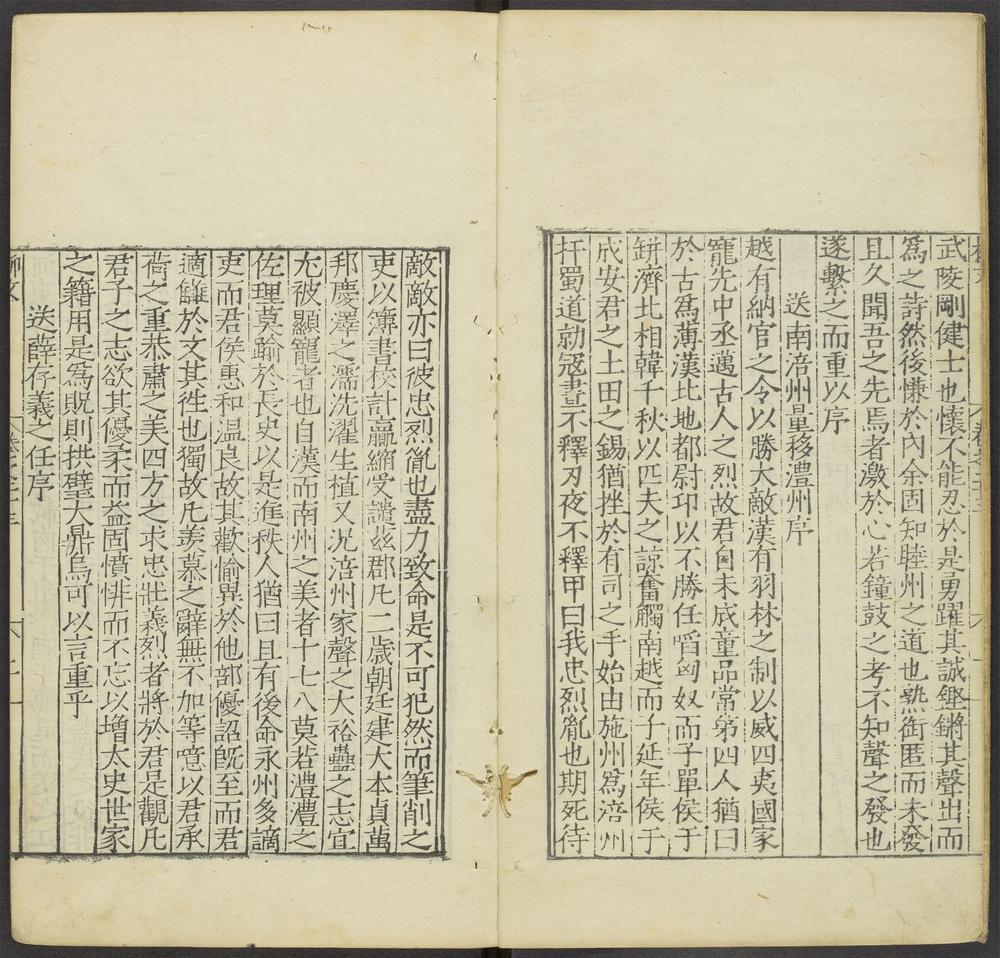 武陵剛健士也懷不能忍於是勇躍其誠鏗鏘其聲出而
爲之詩然後慊於內余固知睦州之道也熟銜匿而未發
且久聞吾之先焉者激於心若鐘鼓之考不知聲之發也
遂繫之而重以序
送南涪州量移澧州序
越有納官之令以勝大敵漢有羽林之制以威四夷國家
寵先中丞邁古人之烈故君自未成童品常第四人猶曰
於古爲薄漢北地都尉卬以不勝任㗖匈奴而子單侯于
缾濟北相韓千秋以匹夫之諒奮觸南越而子延年侯于
成安君之土田之錫猶挫於有司之手始由施州爲涪州
扞蜀道勍寇晝不釋刃夜不釋甲曰我忠烈胤也期死待
敵敵亦曰彼忠烈胤也盡力致命是不可犯然而筆削之
吏以簿書校計贏縮受譴茲郡凡二歲朝廷建大本貞萬
邦慶澤之濡洗濯生植又況涪州家聲之大裕蠱之志宜
尢被顯寵者也自漢而南州之美者十七八莫若澧澧之
佐理莫踰於長史以是進秩人猶曰且有後命永州多謫
吏而君侯惠和溫良故其歡愉異於他部優詔旣至而君
適讎於文其徃也獨故凡羨慕之辭無不加等噫以君承
荷之重恭肅之美四方之求忠壯義烈者將於君是觀凡
君子之志欲其優柔而益固憤悱而不忘以增太史世家
之籍用是爲貺則拱璧大鼎烏可以言重乎
送薛存義之任序
柳文